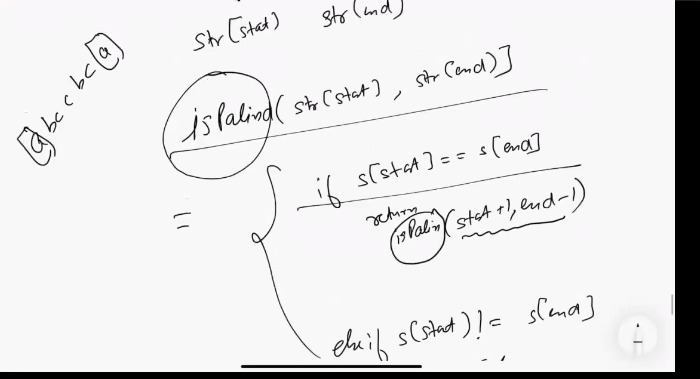 str[stat) str(end)
abc c bc a
isPalind( str(stat], str(end)]
if s[stat] == s[end]
=
return
isPalin(stat+1, end-1)
else if s(stat) != s[end]